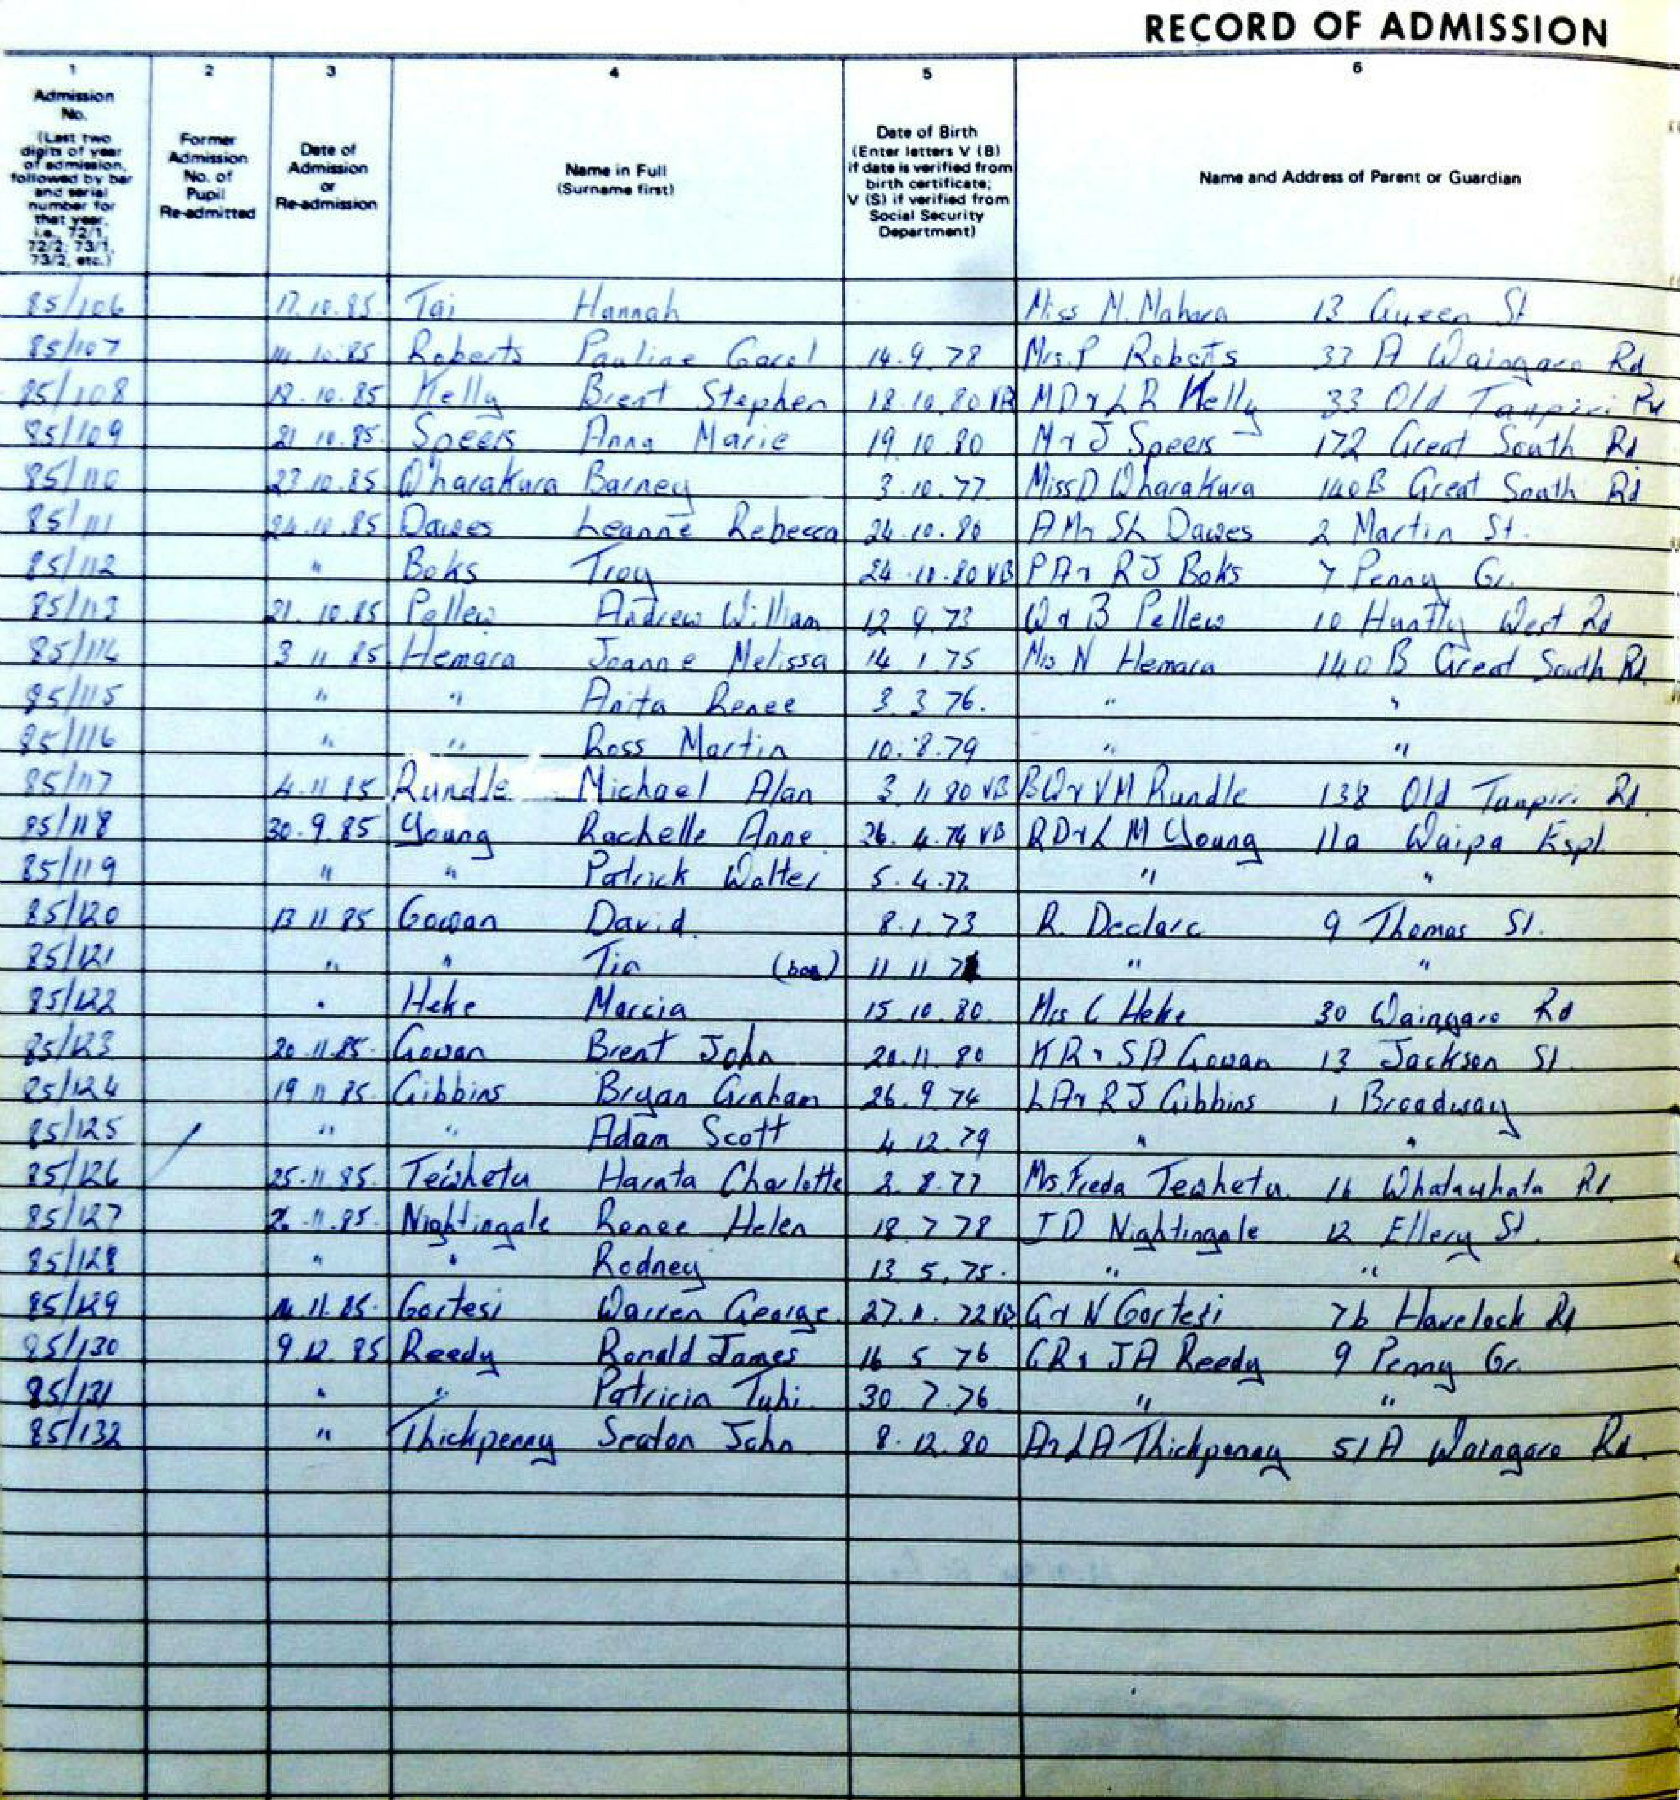 RECORD OF ADMISSION
1 2 3 4 5 6
Admission No. (Last two digits of year of admission, followed by bar and serial number for that year, i.e., 72/1, 72/2, 73/1, 73/2, etc.)
Former Admission No. of Pupil Re-admitted
Date of Admission or Re-admission
Name in Full (Surname first)
Date of Birth (Enter letters V (B) if date is verified from birth certificate; V (S) if verified from Social Security Department)
Name and Address of Parent or Guardian
85/106 17.10.85 Tai Hannah Miss M. Mahara 13 Queen St
85/107 14.10.85 Roberts Pauline Carol 14.9.78 Mrs. P Roberts 33 A Waingaro Rd
85/108 18.10.85 Kelly Brent Stephen 18.10.80 VB MD & L R Kelly 33 Old Taupiri Rd
85/109 21.10.85 Speers Anna Marie 19.10.80 M & J Speers 172 Great South Rd
85/110 23.10.85 Wharakura Barney 3.10.77 Miss D Wharakura 140B Great South Rd
85/111 24.10.85 Dawes Leanne Rebecca 24.10.80 AM & SL Dawes 2 Martin St.
85/112 " Boks Troy 24.10.80 VB PA & RJ Boks 7 Penny Gr.
85/113 21.10.85 Pellew Andrew William 12 9.73 W & B Pellew 10 Huntly West Rd
85/114 3 11 85 Hemara Joanne Melissa 14 1 75 Mrs N Hemara 140 B Great South Rd
85/115 " " Anita Renee 3 3 76. " "
85/116 " " Ross Martin 10.8.79 " "
85/117 4.11 85 Rundle Michael Alan 3 11 80 VB BW & VM Rundle 138 Old Taupiri Rd
85/118 30.9.85 Young Rachelle Anne 26.4.74 VB RD & L M Young 11a Waipa Espl.
85/119 " " Patrick Walter 5.4.77 " "
85/120 13 11 85 Gowan David 8.1.73 R. Declarc 9 Thomas St.
85/121 " " Tia (boy) 11 11 " "
85/122 " Heke Marcia 15 10 80 Mrs C Heke 30 Waingaro Rd
85/123 20.11.85. Gowan Brent John 20.11 80 KR & SA Gowan 13 Jackson St.
85/124 19 11 85. Gibbins Bryan Graham 26.9 74 LA & RJ Gibbins 1 Broadway
85/125 " " Adam Scott 4 12.79 " "
85/126 25.11.85. Tewhetu Harata Charlotte 2 8.77 Ms Freda Tewhetu. 16 Whatawhata Rd.
85/127 26.11.85. Nightingale Renee Helen 18 7 78 JD Nightingale 12 Ellery St.
85/128 " " Rodney 13 5.75. " "
85/129 14.11.85. Cortesi Warren George 27.11.72 VB G & N Cortesi 76 Havelock Rd
85/130 9.12.85 Reedy Ronald James 16 5 76 CR & JA Reedy 9 Penny Gr.
85/131 " " Patricia Tuhi. 30 7.76 " "
85/132 " Thickpenny Seaton John 8.12.80 A & LA Thickpenny 51A Waingaro Rd.